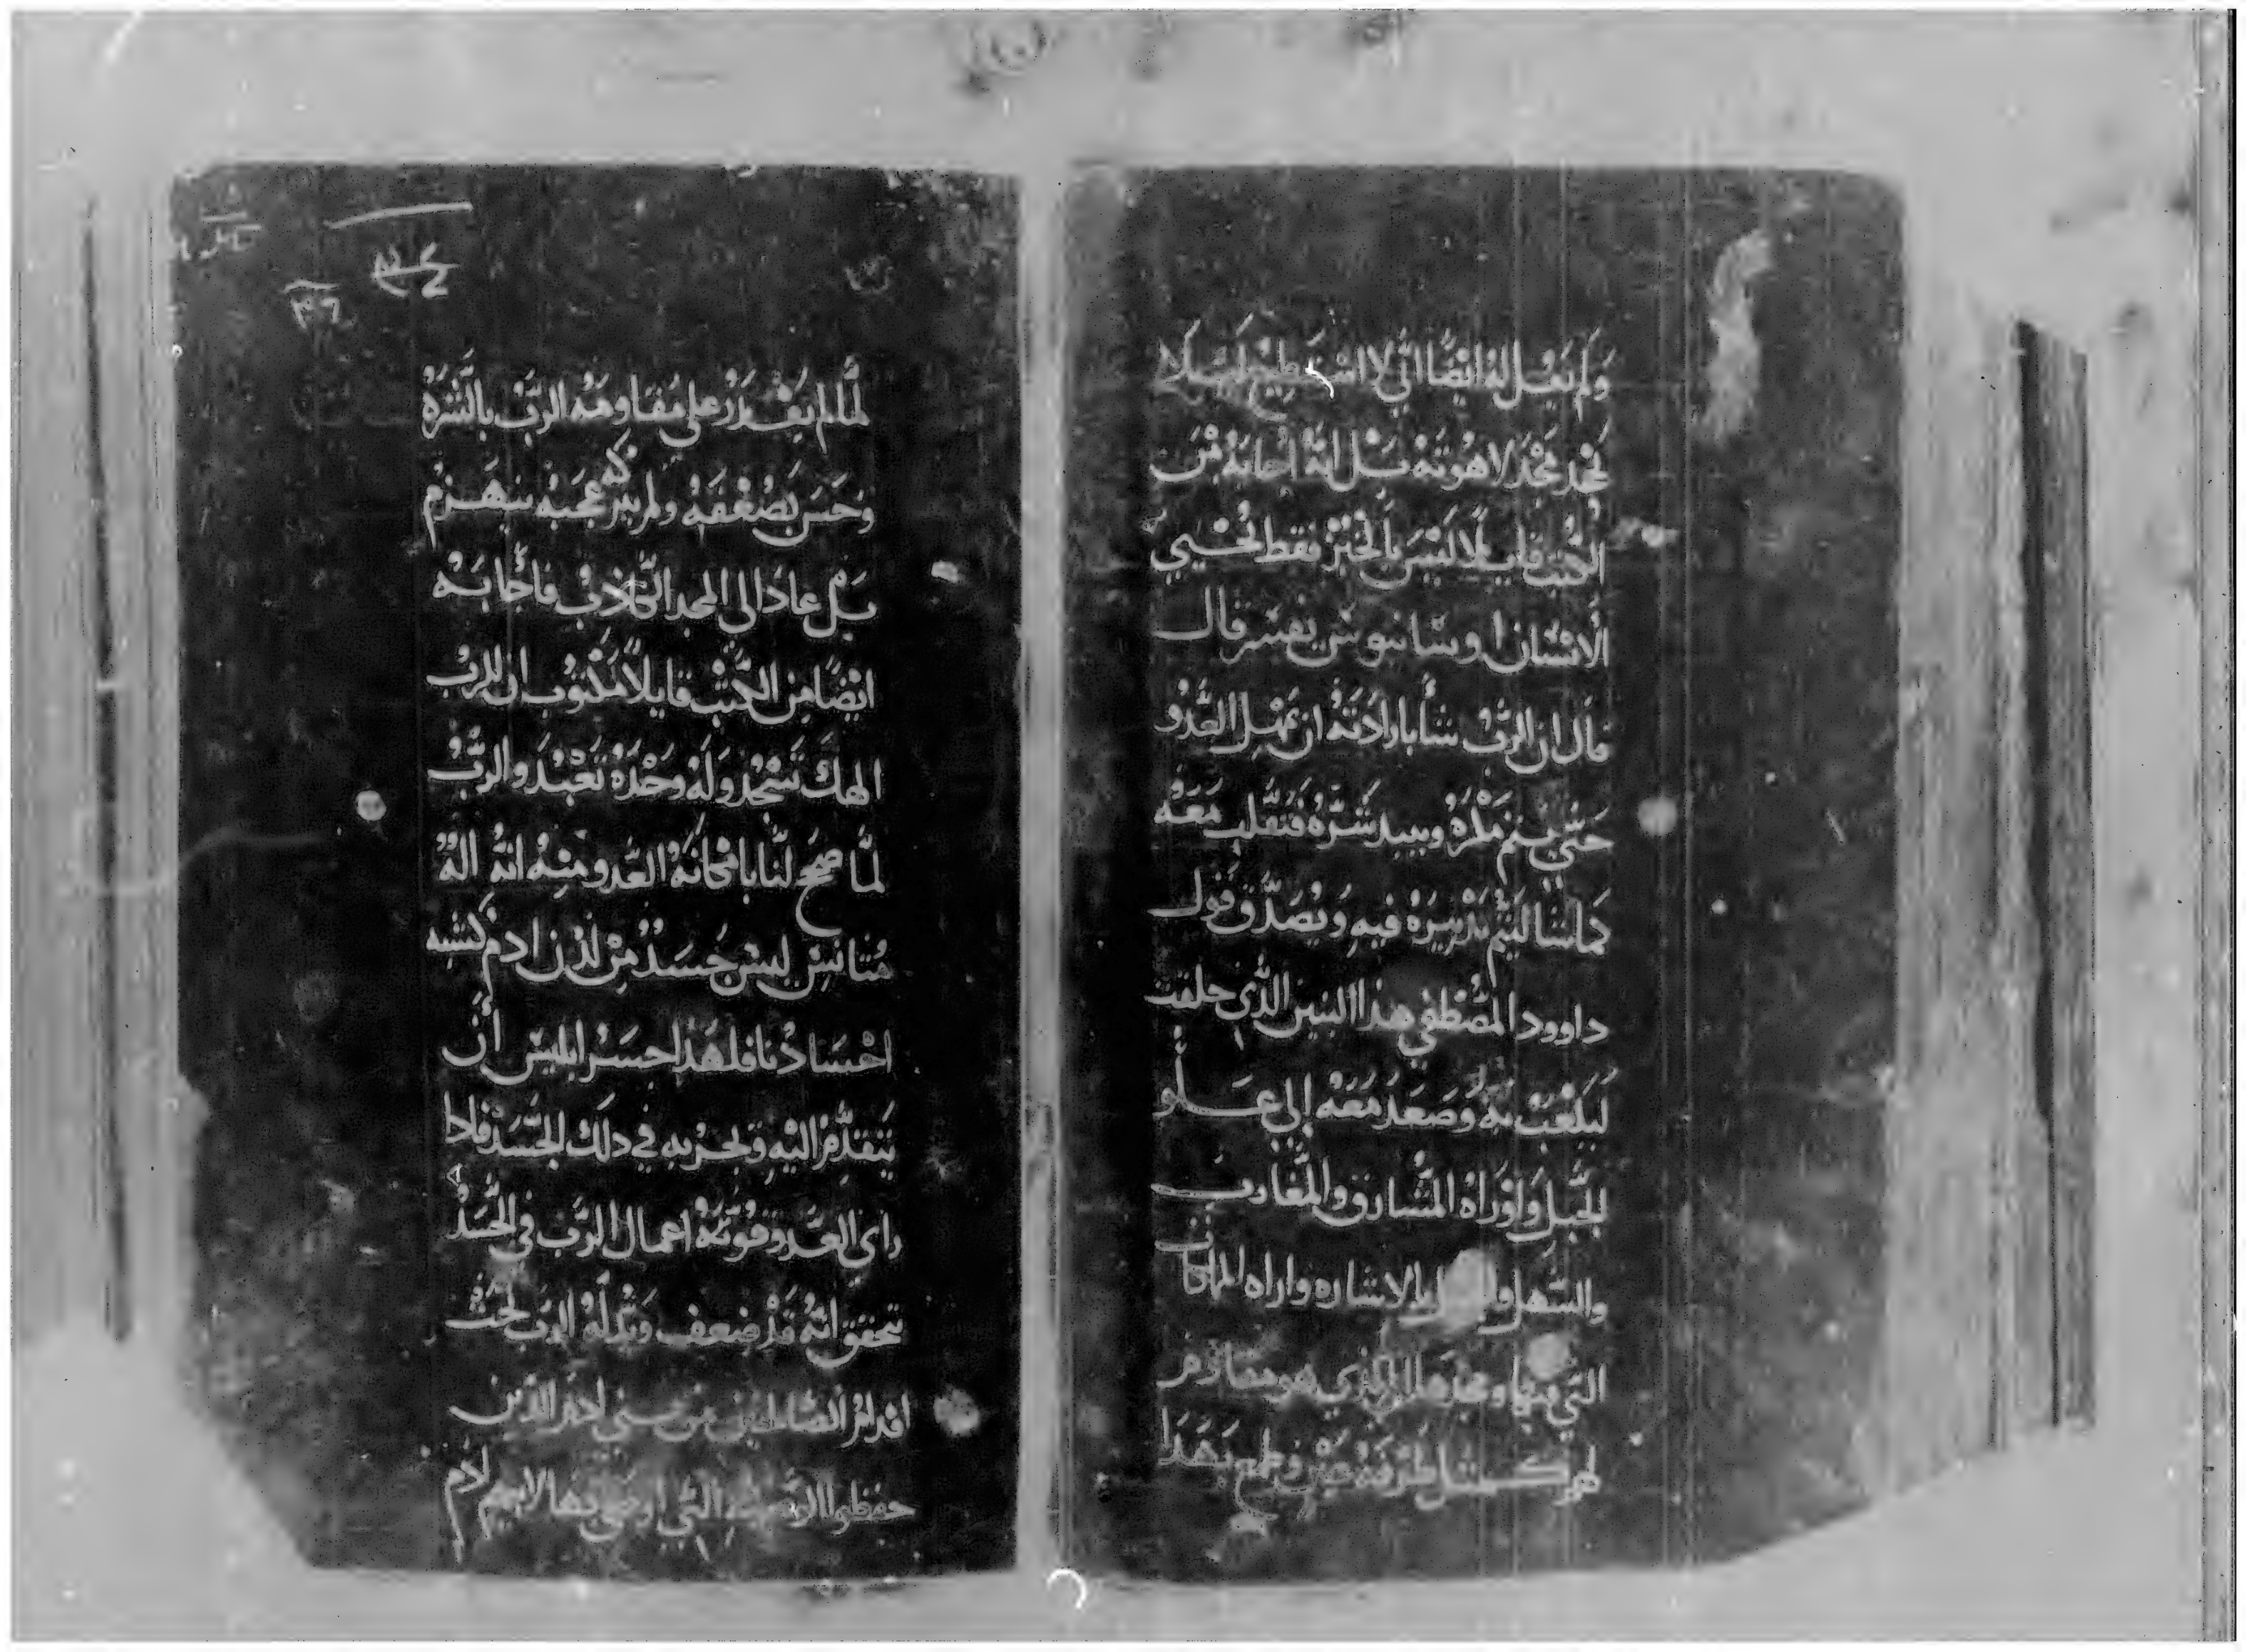 ولم يقل له ايضًا اني لا استطيع لئلا
نجد مجد لاهوته بل انه اجابه من
الكتب قايلًا ليس بالخبز فقط يحيي
الانسان اوسانيوس يفسر قال
قال ان الرب شا بارادته ان يمهل العدو
حتى يتم مكره ويبيد شره فتقلب معه
كما شا ليتم تدبيره فيه ويصدق قول
داوود المصطفى هذا التنين الذي خلقت
ليلعب به وصعد معه إلى علو
الجبل واوراه المشارق والمغارب
والسهل بالاشاره واراه الممالك
التي ومجدها الذي هو
طرفة عين وطمع بهذا
لما لم يقدر على مقاومة الرب بالشره
وحسن بضعفه ولم يترك عجبه ينهزم
بل عاد الى المجد الكاذب فأجابه
ايضًا من الكتب قايلًا مكتوب ان للرب
الهك تسجد وله وحده تعبد والرب
لما صح لنا بامتحانة العدو ومنه انه اله
متانس لبس جسد من لدن ادم كشبه
اجسادنا فلهذا جسر ابليس أن
يتقدم اليه ويجربه في دلك الجسد فادا
راي العدو قوته اعمال الرب في الجسد
تحقق انه قد ضعف وبدله الرب تحت
اقدام الشياطين من بني ادم الذين
حفظوا الوصيه التي اوصى بها لابيهم ادم